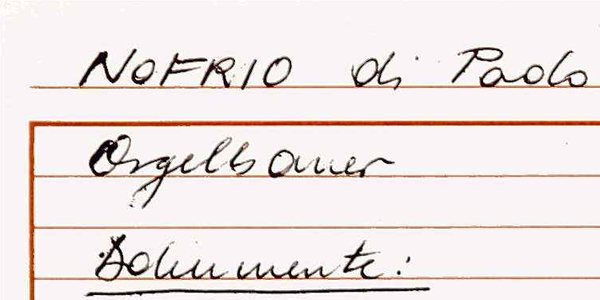 NOFRIO di Paolo
Orgelbauer
Dokumente: